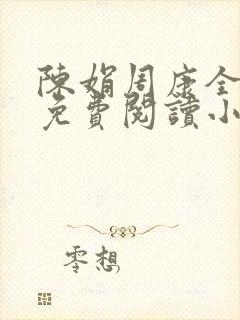 陳娟周康全
免費閱讀小
零想